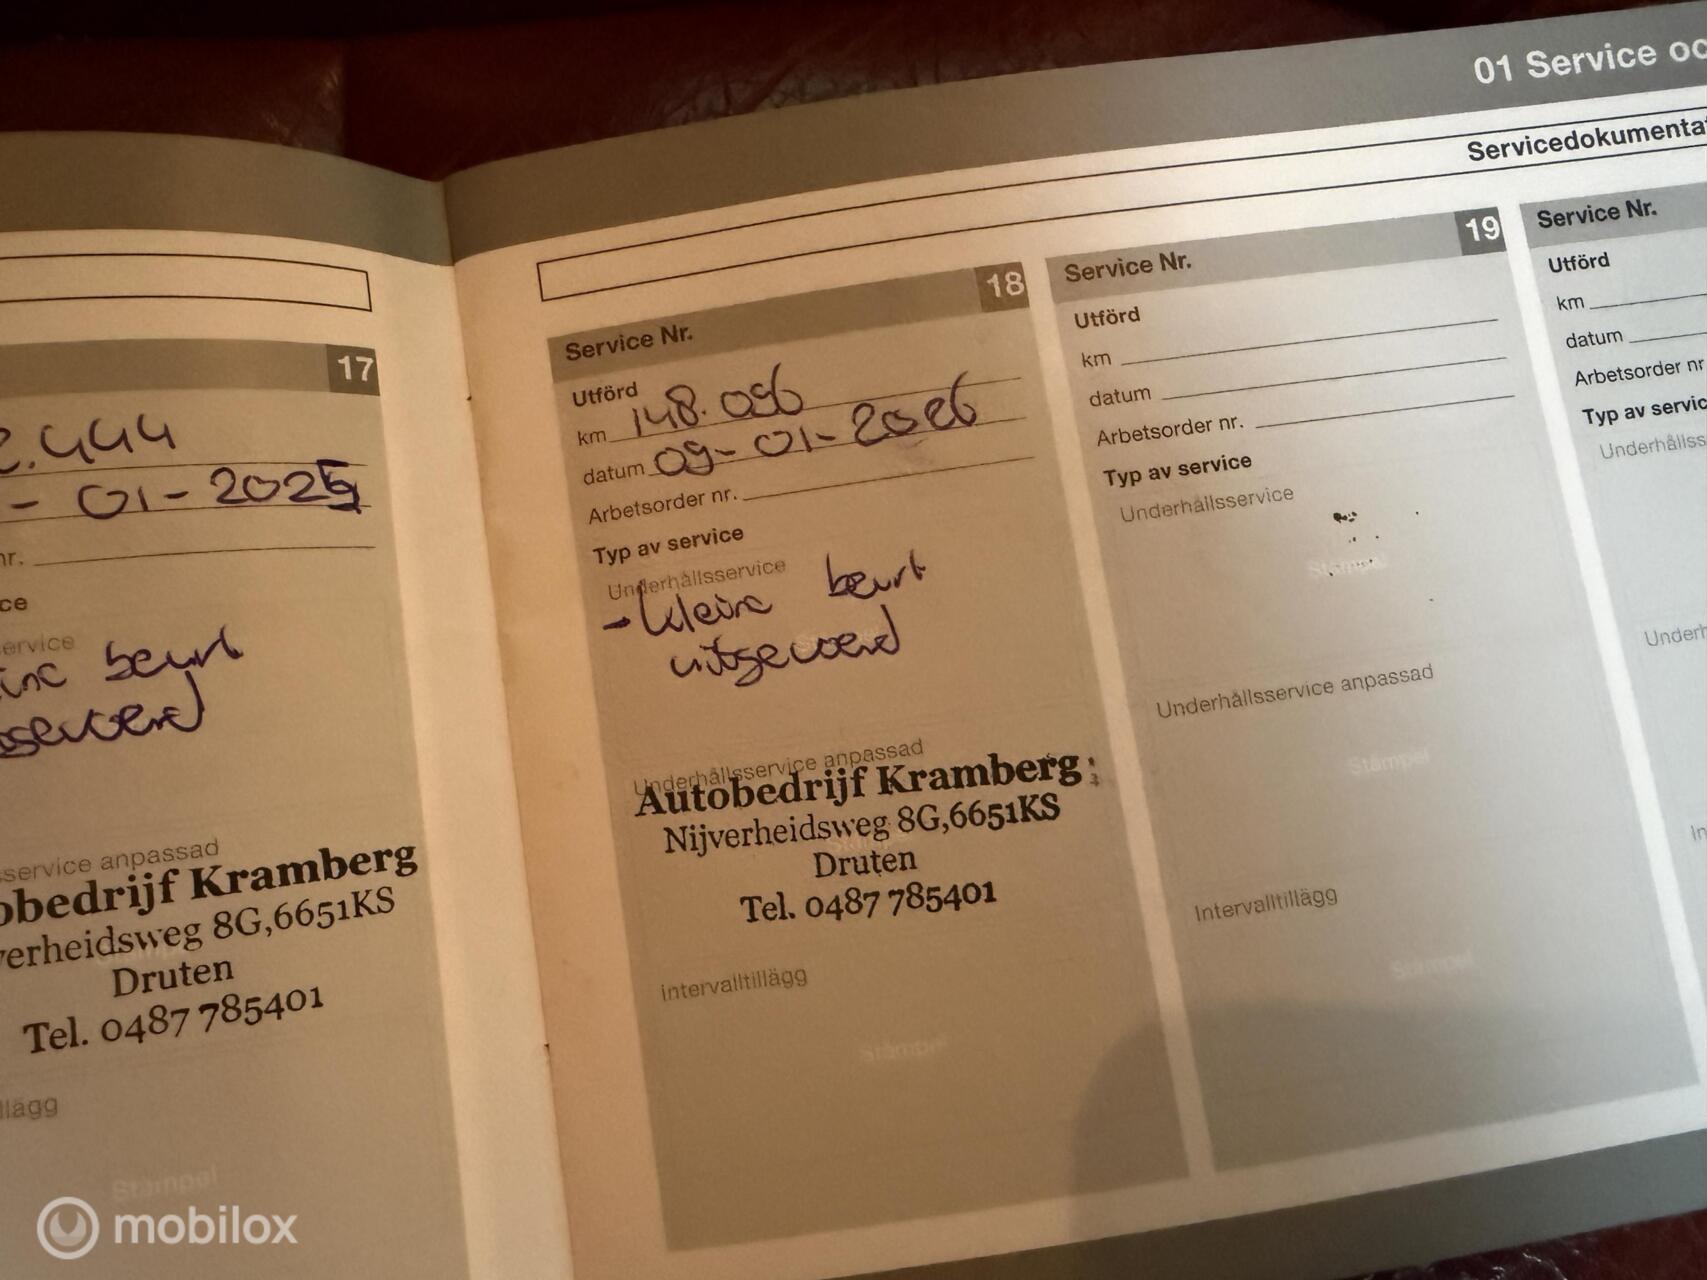 01 Service oc
Servicedokumentat
17
2.444
- 01-2025
nr.
ce
service
beurt
service anpassad
obedrijf Kramberg
verheidsweg 8G,6651KS
Druten
Tel. 0487 785401
llägg
Stämpel
Service Nr. 18
Utförd
km 148.096
datum 09-01-2026
Arbetsorder nr.
Typ av service
Underhållsservice
- kleine beurt
uitgevoerd
Underhållsservice anpassad
Autobedrijf Kramberg
Nijverheidsweg 8G,6651KS
Druten
Tel. 0487 785401
Intervalltillägg
Stämpel
Service Nr. 19
Utförd
km
datum
Arbetsorder nr.
Typ av service
Underhållsservice
Stämpel
Underhållsservice anpassad
Stämpel
Intervalltillägg
Stämpel
Service Nr.
Utförd
km
datum
Arbetsorder nr
Typ av servic
Underhållss
Underh
In
mobilox